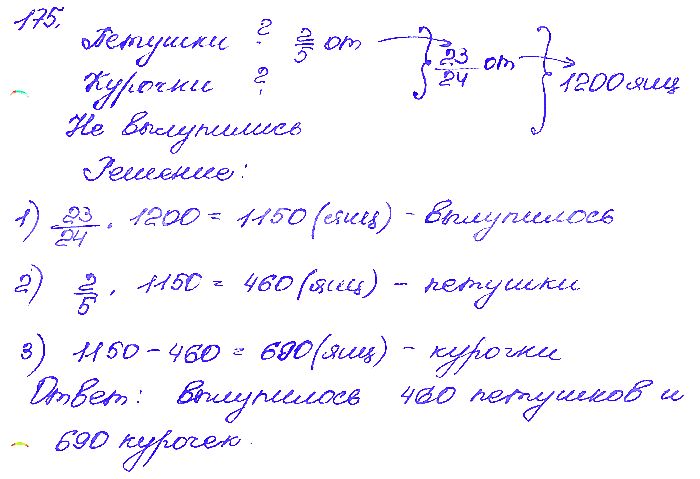 175.
Петушки ? 2/5 от } 23/24 от } 1200 яиц
Курочки ?
Не вылупились
Решение:
1) 23/24 · 1200 = 1150 (яиц) - вылупилось
2) 2/5 · 1150 = 460 (яиц) - петушки
3) 1150 - 460 = 690 (яиц) - курочки
Ответ: вылупилось 460 петушков и
690 курочек.